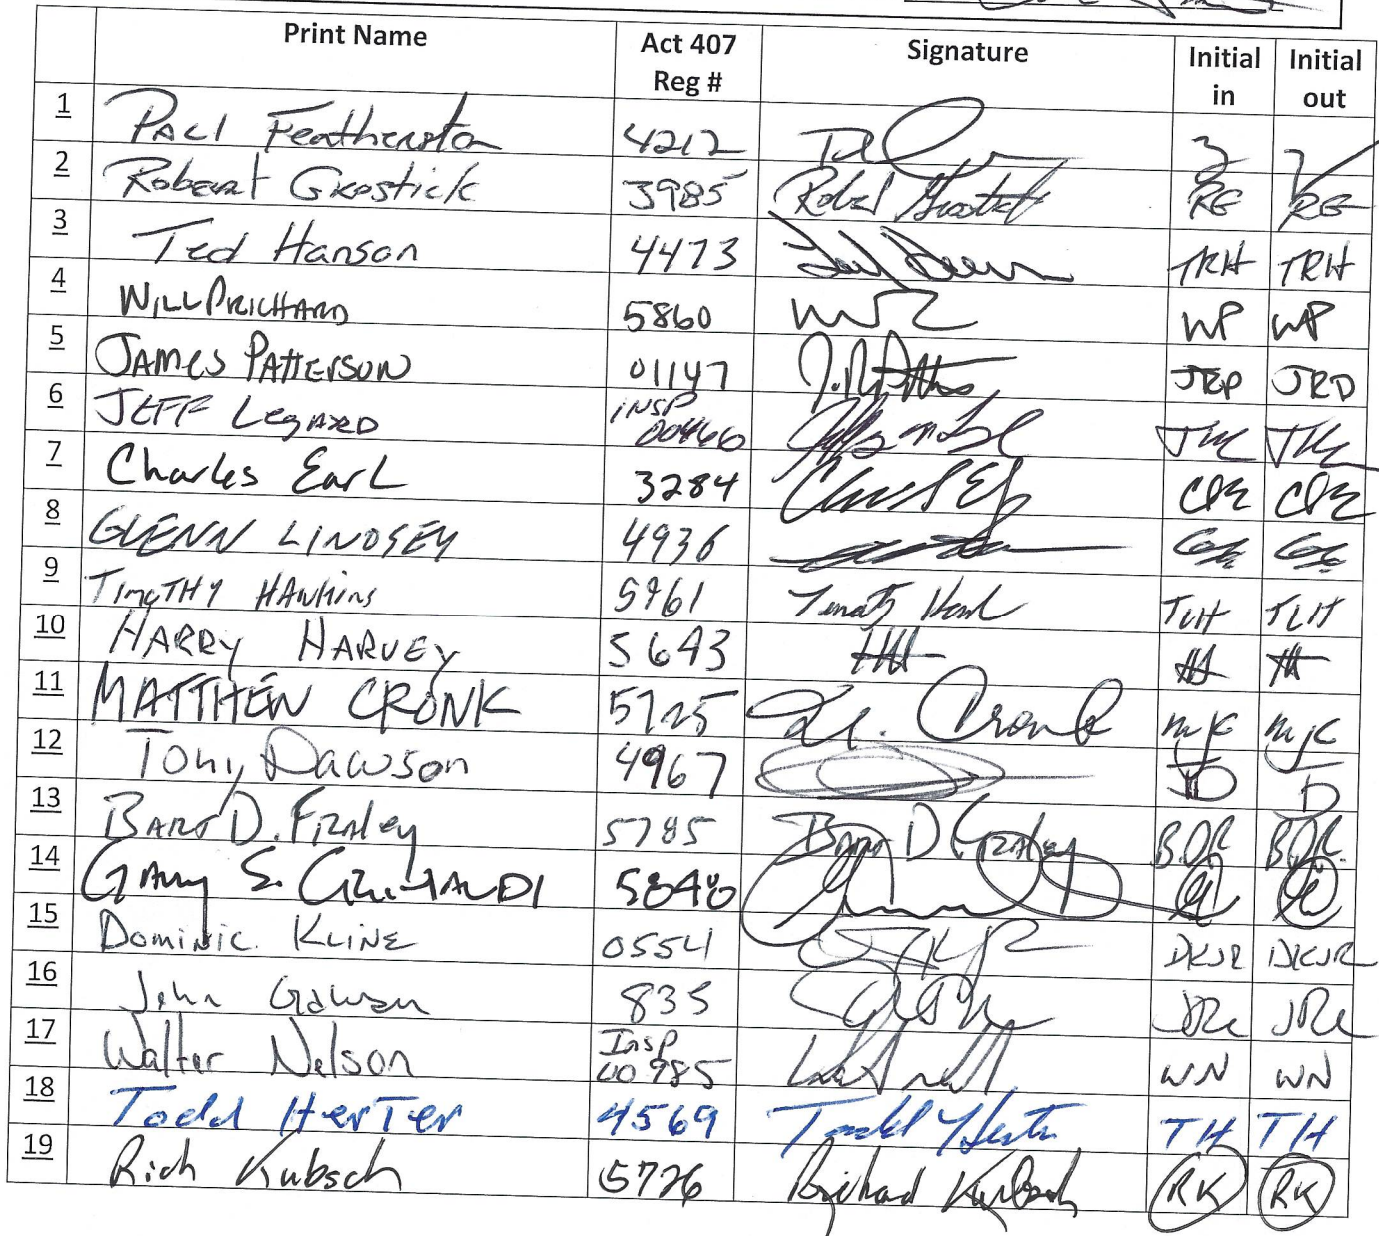 Print Name Act 407 Reg # Signature Initial in Initial out
1 Paul Featherston 4212
2 Robert Grostick 3985 RG RG
3 Ted Hanson 4473 TRH TRH
4 Will Prichard 5860 WP WP
5 James Patterson 01147 JRP JRP
6 Jeff Legard INSP 00460
7 Charles Earl 3284
8 GLENN LINDSEY 4936
9 Timothy Hawkins 5961 TLH TLH
10 HARRY HARVEY 5643 HH HH
11 MATTHEW CRONK 5725 Cronk mjc mjc
12 Tony Dawson 4967 D
13 Bart D. Fraley 5785 Bart D Fraley
14 Gary S. Grimaldi 5848
15 Dominic Kline 05541 DKJR DKJR
16 John 835
17 Walter Nelson Insp WN WN
18 Todd Herter 4569 Todd Herter TH TH
19 Rich Kubsch 5726 Richard Kubsch RK RK